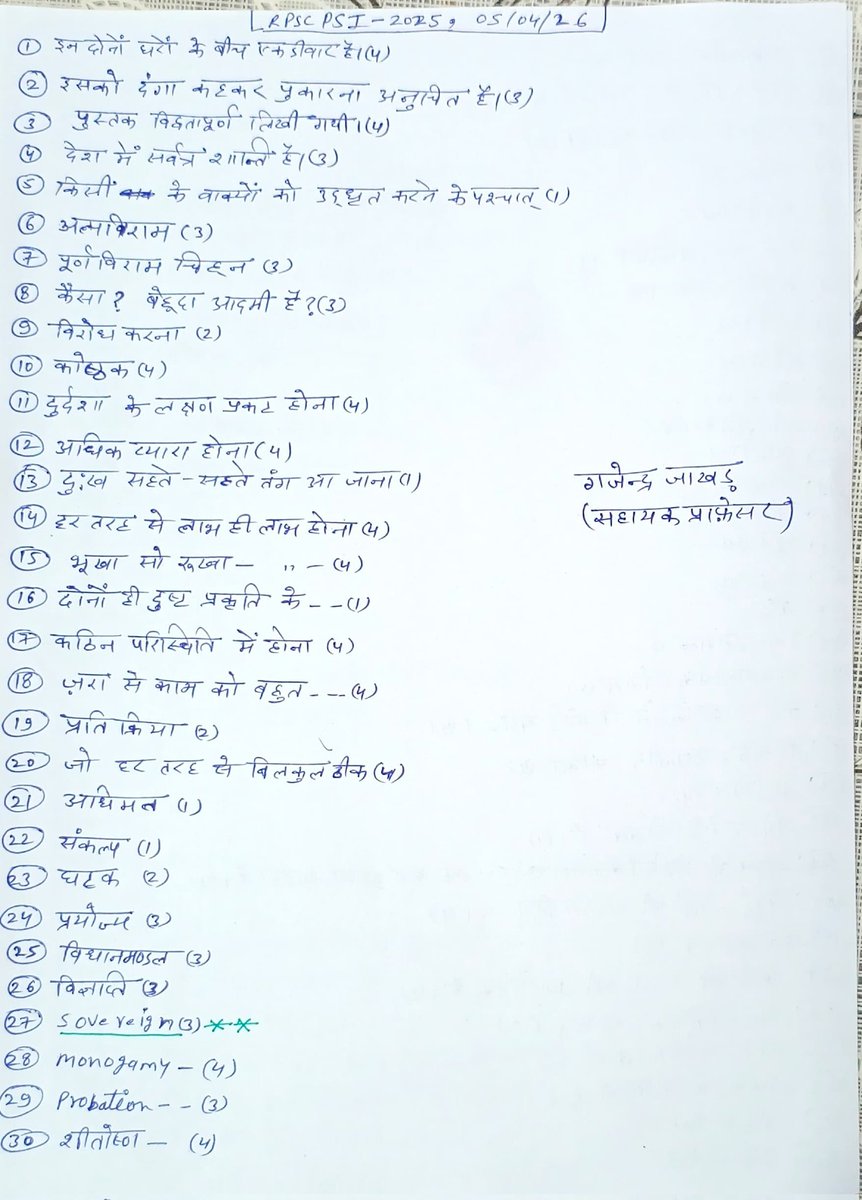 RPSC PSI-2025, 05/04/26
① इन दोनों घरों के बीच एक दीवार है। (4)
② इसको दंगा कहकर पुकारना अनुचित है। (3)
③ पुस्तक विद्वतापूर्ण लिखी गयी। (4)
④ देश में सर्वत्र शान्ति है। (3)
⑤ किसी के वाक्यों को उद्धृत करने के पश्चात् (1)
⑥ अल्पविराम (3)
⑦ पूर्णविराम चिह्न (3)
⑧ कैसा? बेहूदा आदमी है? (3)
⑨ विरोध करना (2)
⑩ कोष्ठक (4)
⑪ दुर्दशा के लक्षण प्रकट होना (4)
⑫ अधिक प्यारा होना (4)
⑬ दुःख सहते-सहते तंग आ जाना (1)
⑭ हर तरह से लाभ ही लाभ होना (4)
⑮ भूखा सो रूखा - ,, - (4)
⑯ दोनों ही दुष्ट प्रकृति के - - (1)
⑰ कठिन परिस्थिति में होना (4)
⑱ ज़रा से काम को बहुत - -- (4)
⑲ प्रति क्रिया (2)
⑳ जो हर तरह से बिलकुल ठीक (4)
㉑ अधिमत (1)
㉒ संकल्प (1)
㉓ घटक (2)
㉔ प्रयोज्य (3)
㉕ विधानमण्डल (3)
㉖ विज्ञप्ति (3)
㉗ Sovereign (3) **
㉘ monogamy - (4)
㉙ Probation - - (3)
㉚ शीतोष्ण - (4)
गजेन्द्र जाखड़
(सहायक प्रोफ़ेसर)